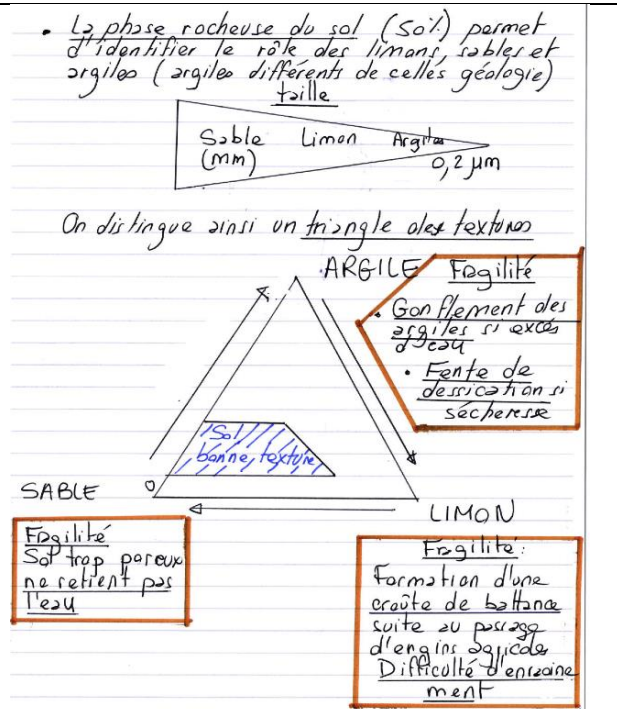 • La phase rocheuse du sol (50%) permet
d'identifier le rôle des limons, sables et
argiles (argiles différents de celles géologie)
taille
Sable Limon Argiles
(mm) 0,2 µm
On distingue ainsi un triangle des textures
ARGILE
Fragilité
• Gonflement des
argiles si excès
d'eau
• Fente de
dessication si
sécheresse
Sol
bonne texture
SABLE
0
LIMON
Fragilité
Sol trop poreux
ne retient pas
l'eau
Fragilité:
Formation d'une
croûte de battance
suite au passage
d'engins agricoles
Difficulté d'enracine
ment